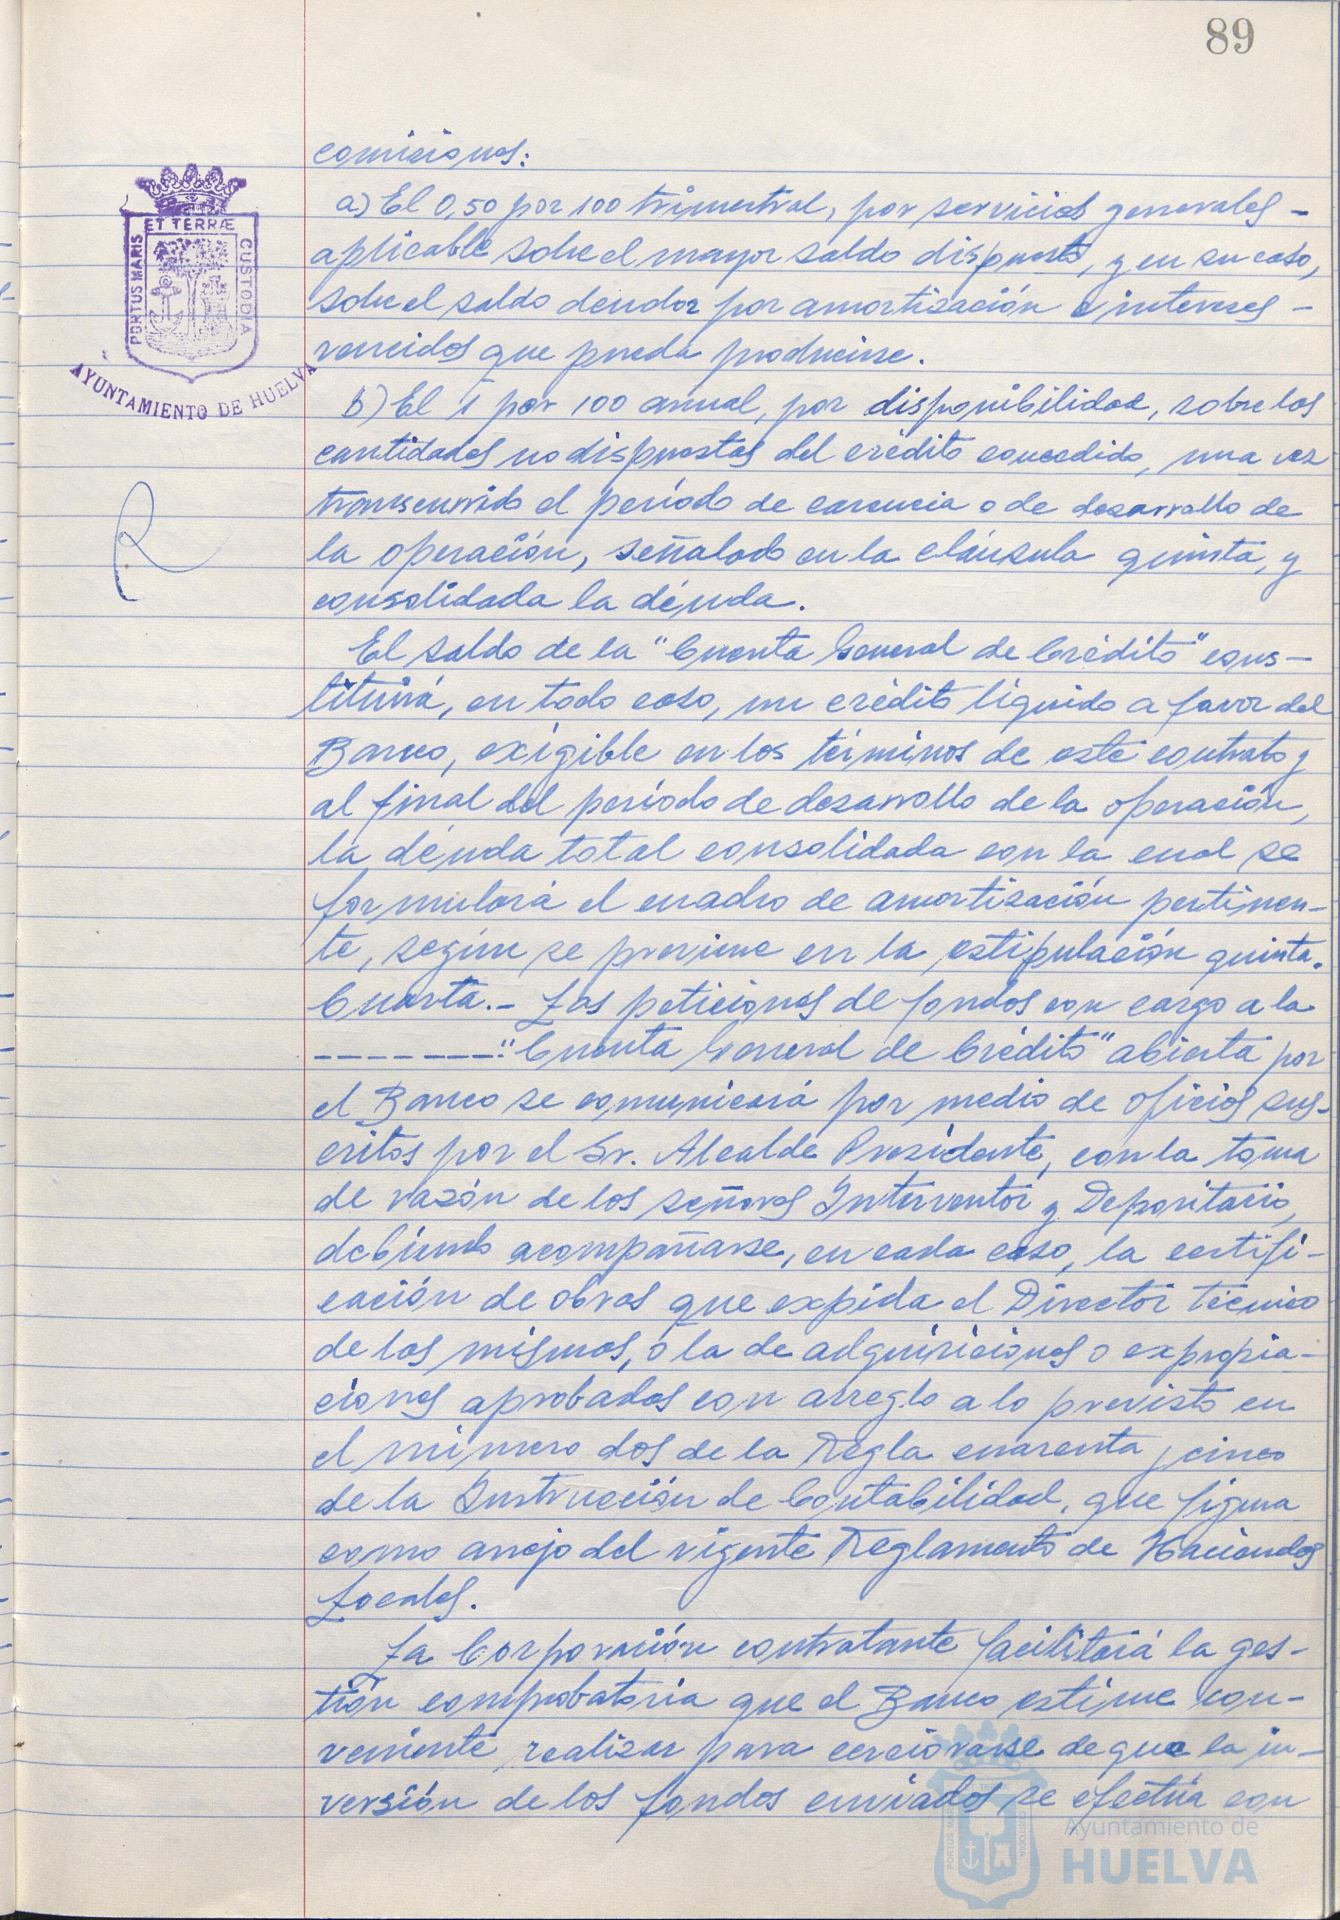 89
comisiones:
a) El 0,50 por 100 trimestral, por servicios generales -
aplicable sobre el mayor saldo dispuesto, y en su caso,
sobre el saldo deudor por amortización e intereses -
vencidos que pueda producirse.
b) El 1 por 100 anual, por disponibilidad, sobre las
cantidades no dispuestas del crédito concedido, una vez
transcurrido el período de carencia o de desarrollo de
la operación, señalado en la cláusula quinta, y
consolidada la deuda.
El saldo de la "Cuenta General de Crédito" cons-
tituirá, en todo caso, un crédito líquido a favor del
Banco, exigible en los términos de este contrato y
al final del período de desarrollo de la operación,
la deuda total consolidada con la cual se
formulará el cuadro de amortización pertinen-
te, según se previene en la estipulación quinta.
Cuarta.- Las peticiones de fondos con cargo a la
-------- "Cuenta General de Crédito" abierta por
el Banco se comunicará por medio de oficios sus-
critos por el Sr. Alcalde Presidente, con la toma
de razón de los señores Interventor y Depositario,
debiendo acompañarse, en cada caso, la certifi-
cación de obras que expida el Director técnico
de las mismas, o la de adquisiciones o expropia-
ciones aprobadas con arreglo a lo previsto en
el número dos de la Regla cuarenta y cinco
de la Instrucción de Contabilidad, que figura
como anejo del vigente Reglamento de Haciendas
Locales.
La Corporación contratante facilitará la ges-
tión comprobatoria que el Banco estime con-
veniente realizar para cerciorarse de que la in-
versión de los fondos enviados se efectúa con
PORTUS MARIS
ET TERRÆ
CUSTODIA
AYUNTAMIENTO DE HUELVA
Ayuntamiento de
HUELVA